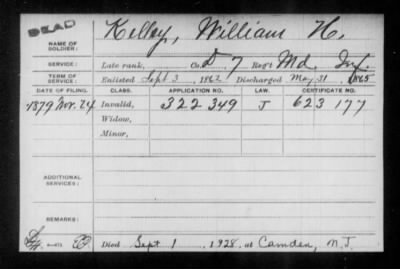 DEAD
NAME OF SOLDIER: Kelley, William H.
SERVICE: Late rank, Co. D 7 Reg't Md. Inf.
TERM OF SERVICE: Enlisted Sept 3, 1862 Discharged May 31, 1865
DATE OF FILING. CLASS. APPLICATION NO. LAW. CERTIFICATE NO.
1879 Nov. 24 Invalid, 322 349 J 623 177
Widow,
Minor,
ADDITIONAL SERVICES:
REMARKS:
Died Sept 1, 1928, at Camden, N.J.